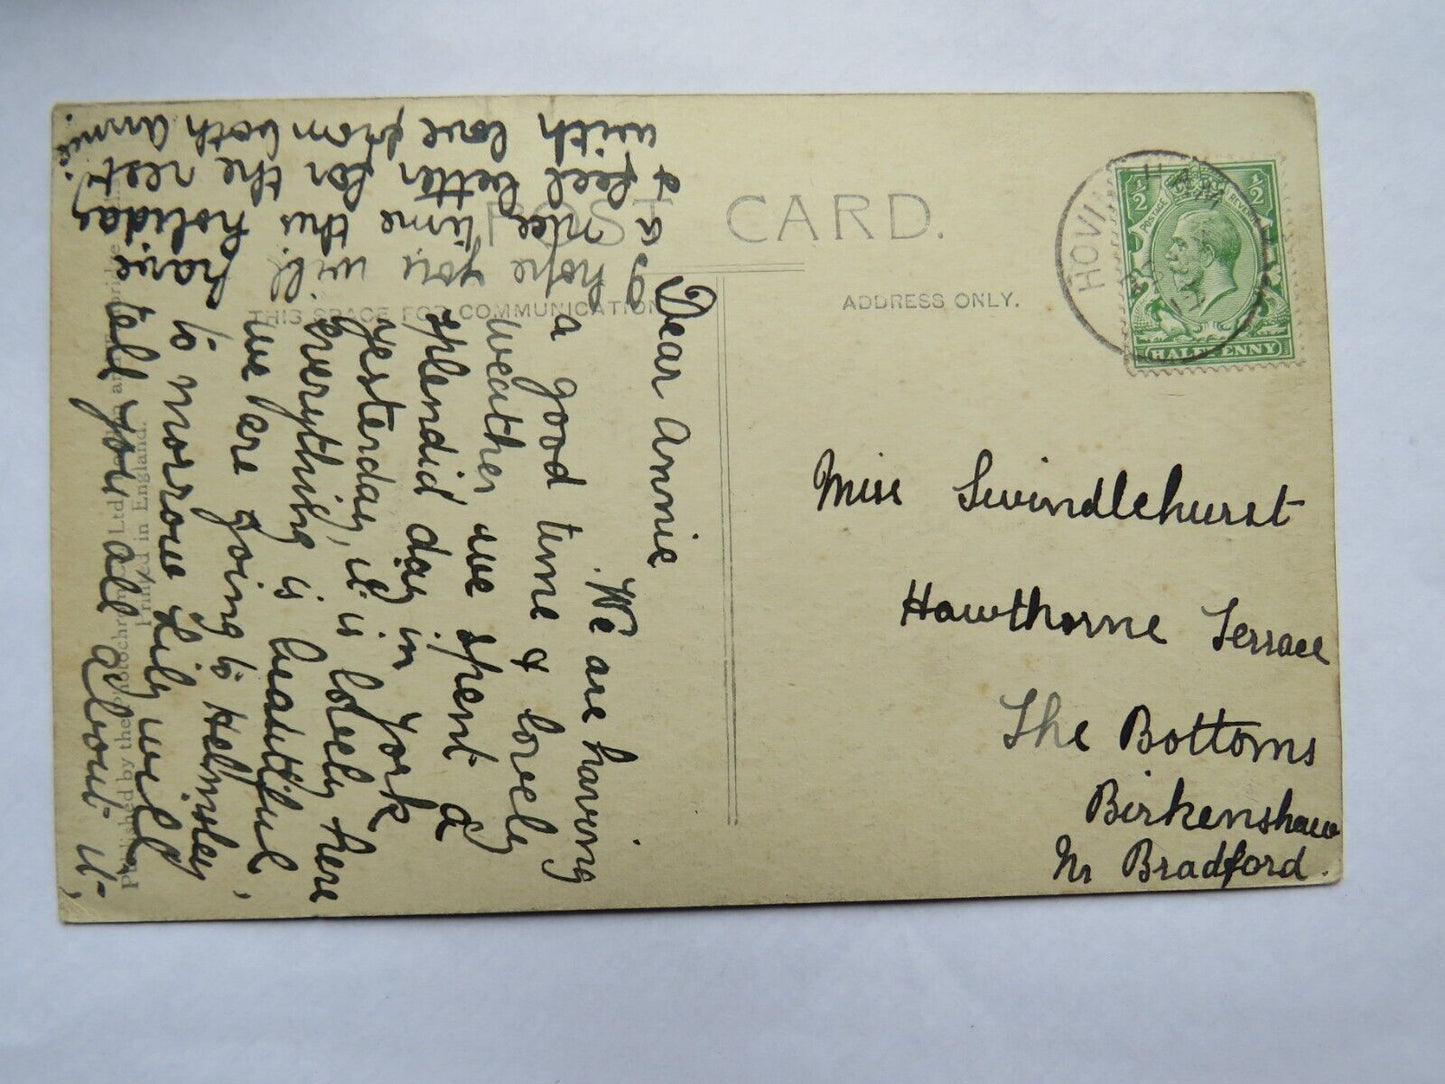 POST CARD.
THIS SPACE FOR COMMUNICATION
ADDRESS ONLY.
Dear Annie
We are having
a good time & lovely
weather, we spent a
splendid day in York
yesterday, it is lovely here
everything is beautiful,
we are going to Helmsley
to morrow Lily will
tell you all about it,
I hope you will have
a nice time this holiday
& feel better for the rest.
with love from both Annie.
Miss Swindlehurst
Hawthorne Terrace
The Bottoms
Birkenshaw
Nr Bradford.
HOVIN
11
POSTAGE REVENUE
½ ½
HALFPENNY
Published by the Photochrom Co. Ltd.
Printed in England.